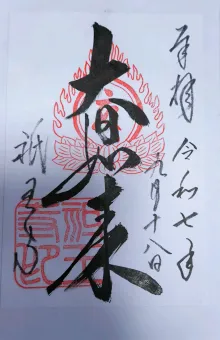 奉拝 令和七年
九月十八日
大日如来
祇王寺